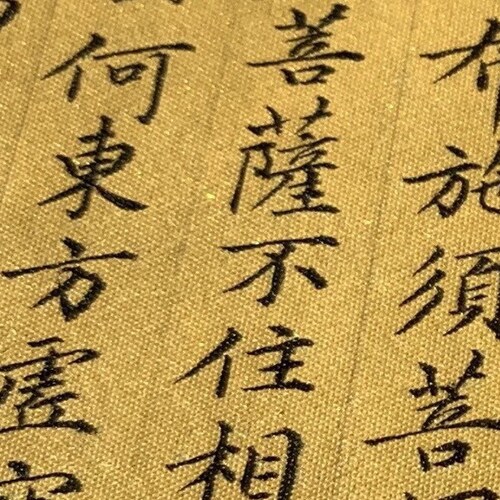 布施須菩
菩薩不住相
何東方虛空